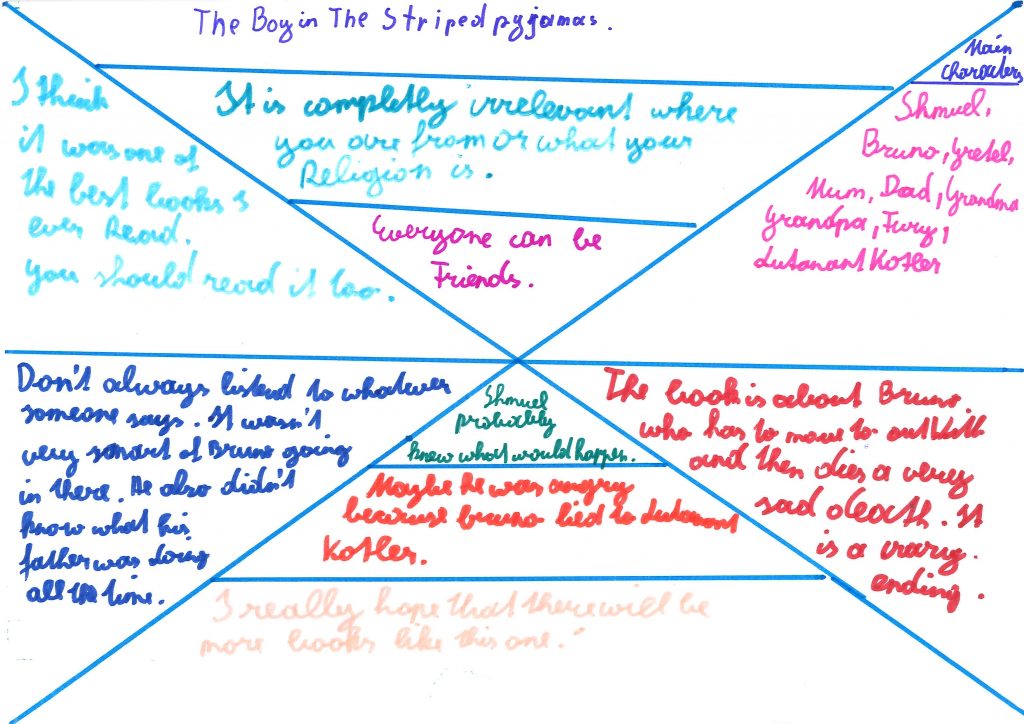 The Boy in The Striped pyjamas.
Main
Characters
I think
it was one of
the best books I
ever Read.
you should read it too.
It is completly irrelevant where
you are from or what your
Religion is.
Everyone can be
Friends.
Shmuel,
Bruno, Gretel,
Mum, Dad, Grandma
Grandpa, Fury,
Lutanant Kotler
Don't always listend to whatever
someone says. It wasn't
very smart of Bruno going
in there. He also didn't
know what his
father was doing
all the time.
Shmuel
probably
knew what would happen.
Maybe he was angry
because bruno lied to Lutanant
Kotler.
I really hope that there will be
more books like this one.
The book is about Bruno.
who has to move to outWith
and then dies a very
sad death. It
is a crazy.
ending.